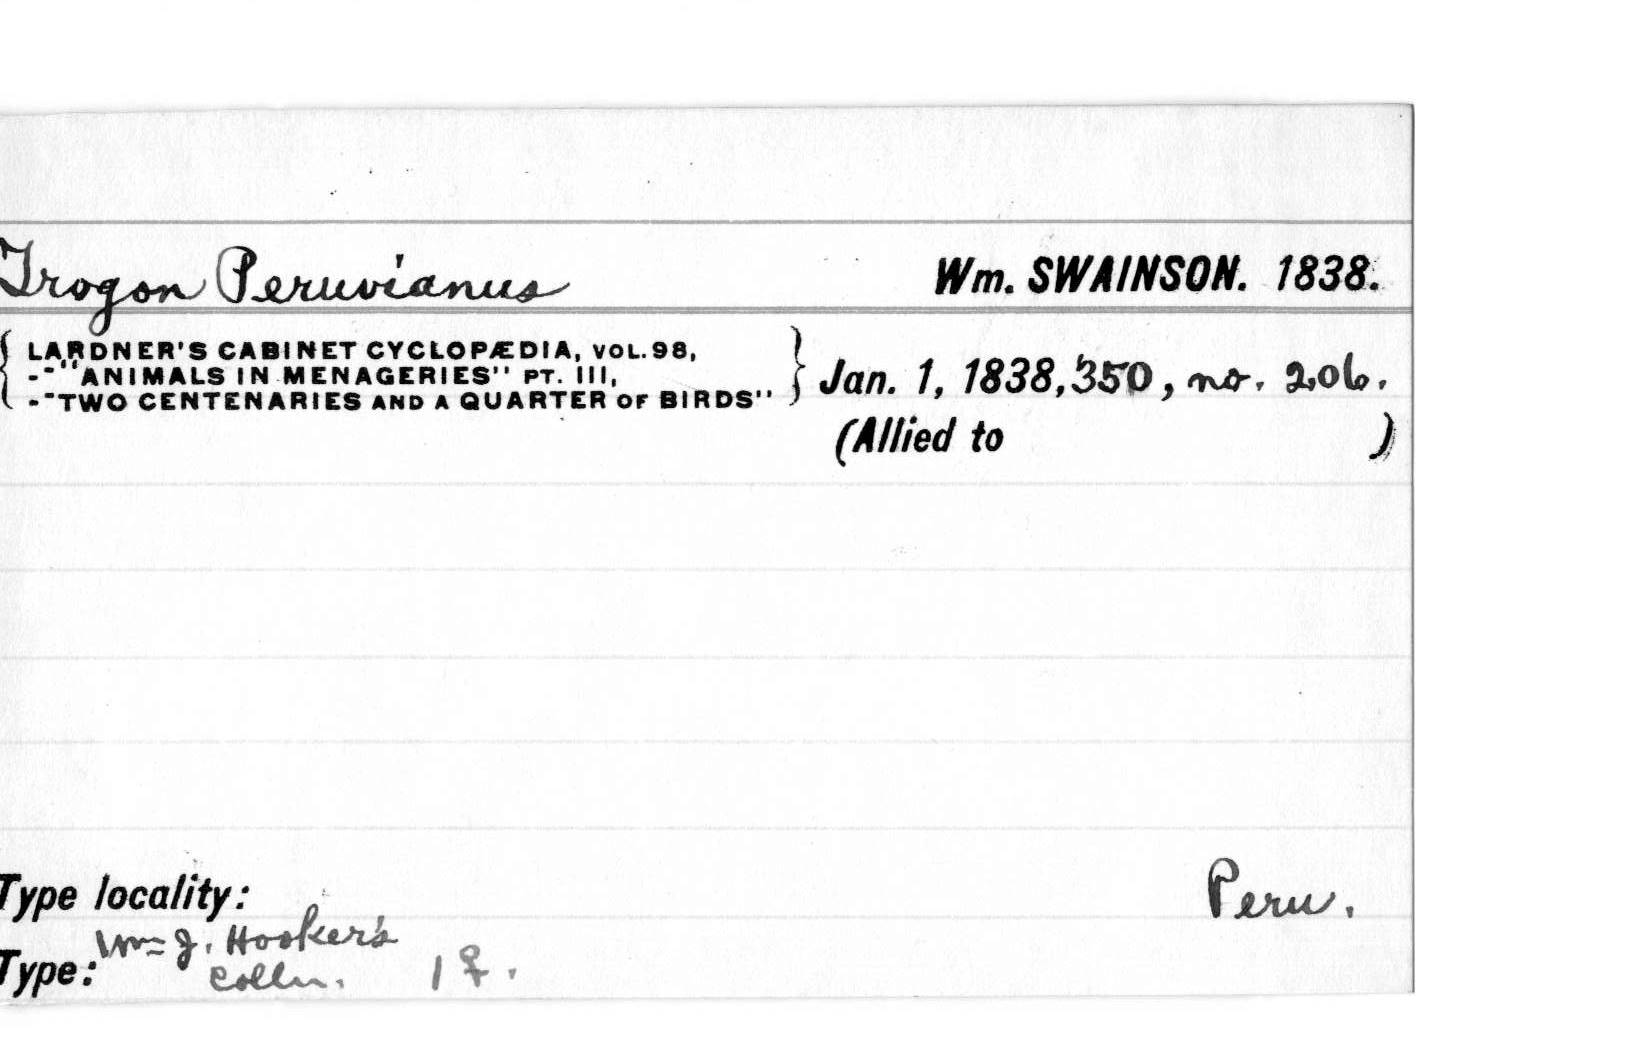 Trogon Peruvianus Wm. SWAINSON. 1838.
{ LARDNER'S CABINET CYCLOPÆDIA, VOL. 98,
-"ANIMALS IN MENAGERIES" PT. III,
-"TWO CENTENARIES AND A QUARTER OF BIRDS" } Jan. 1, 1838, 350, no. 206.
(Allied to )
Type locality: Peru.
Type: Wm J. Hooker's
Colln. 1 ♀.